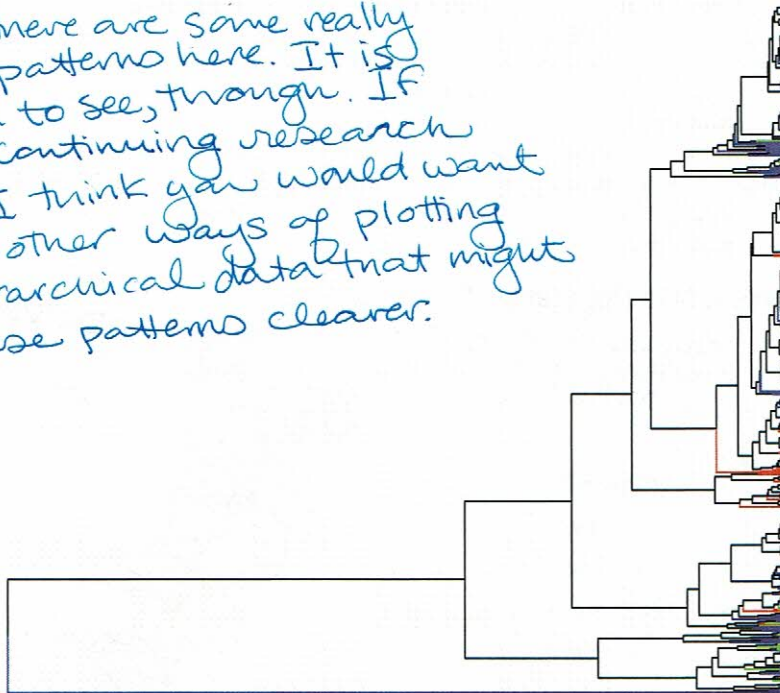 here are some really
patterns here. It is
to see, though. If
continuing research
I think you would want
other ways of plotting
rarchical data that might
se patterns clearer.